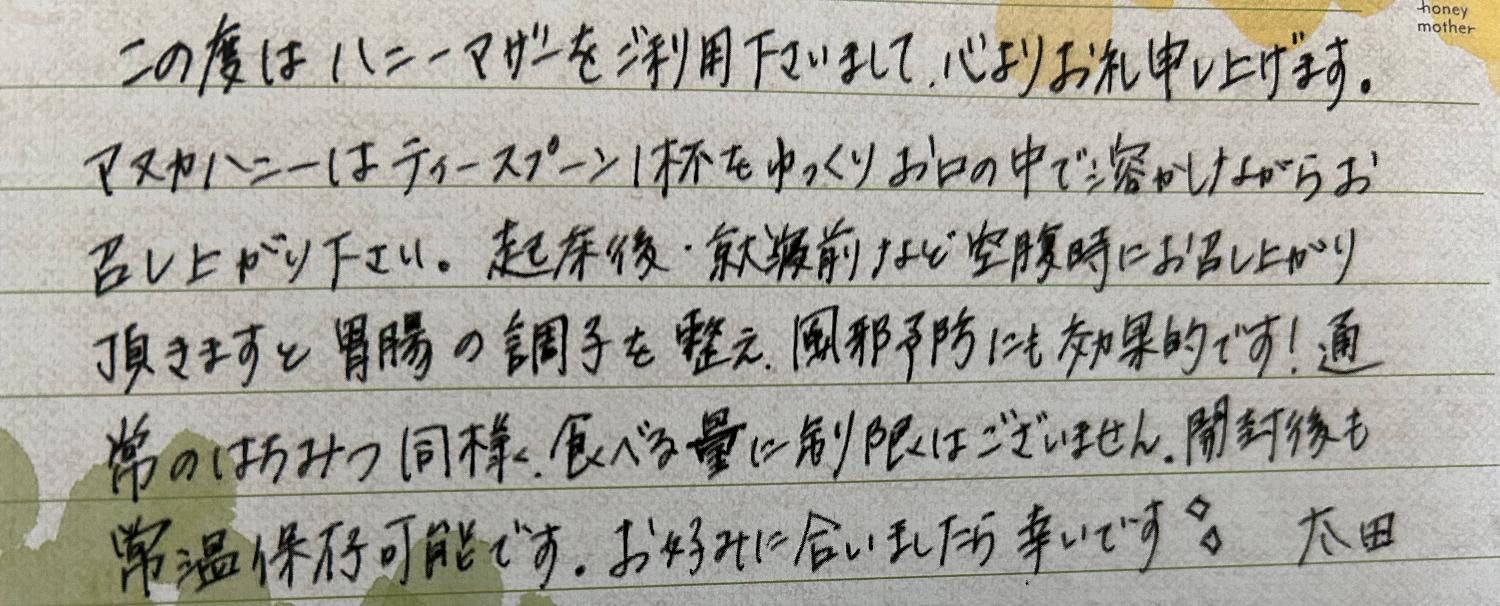 honey
mother
この度はハニーマザーをご利用下さいまして、心よりお礼申し上げます。
マヌカハニーはティースプーン1杯をゆっくりお口の中で溶かしながらお
召し上がり下さい。起床後・就寝前など空腹時にお召し上がり
頂きますと胃腸の調子を整え、風邪予防にも効果的です!通
常のはちみつ同様、食べる量に制限はございません。開封後も
常温保存可能です。お好みに合いましたら幸いです 太田